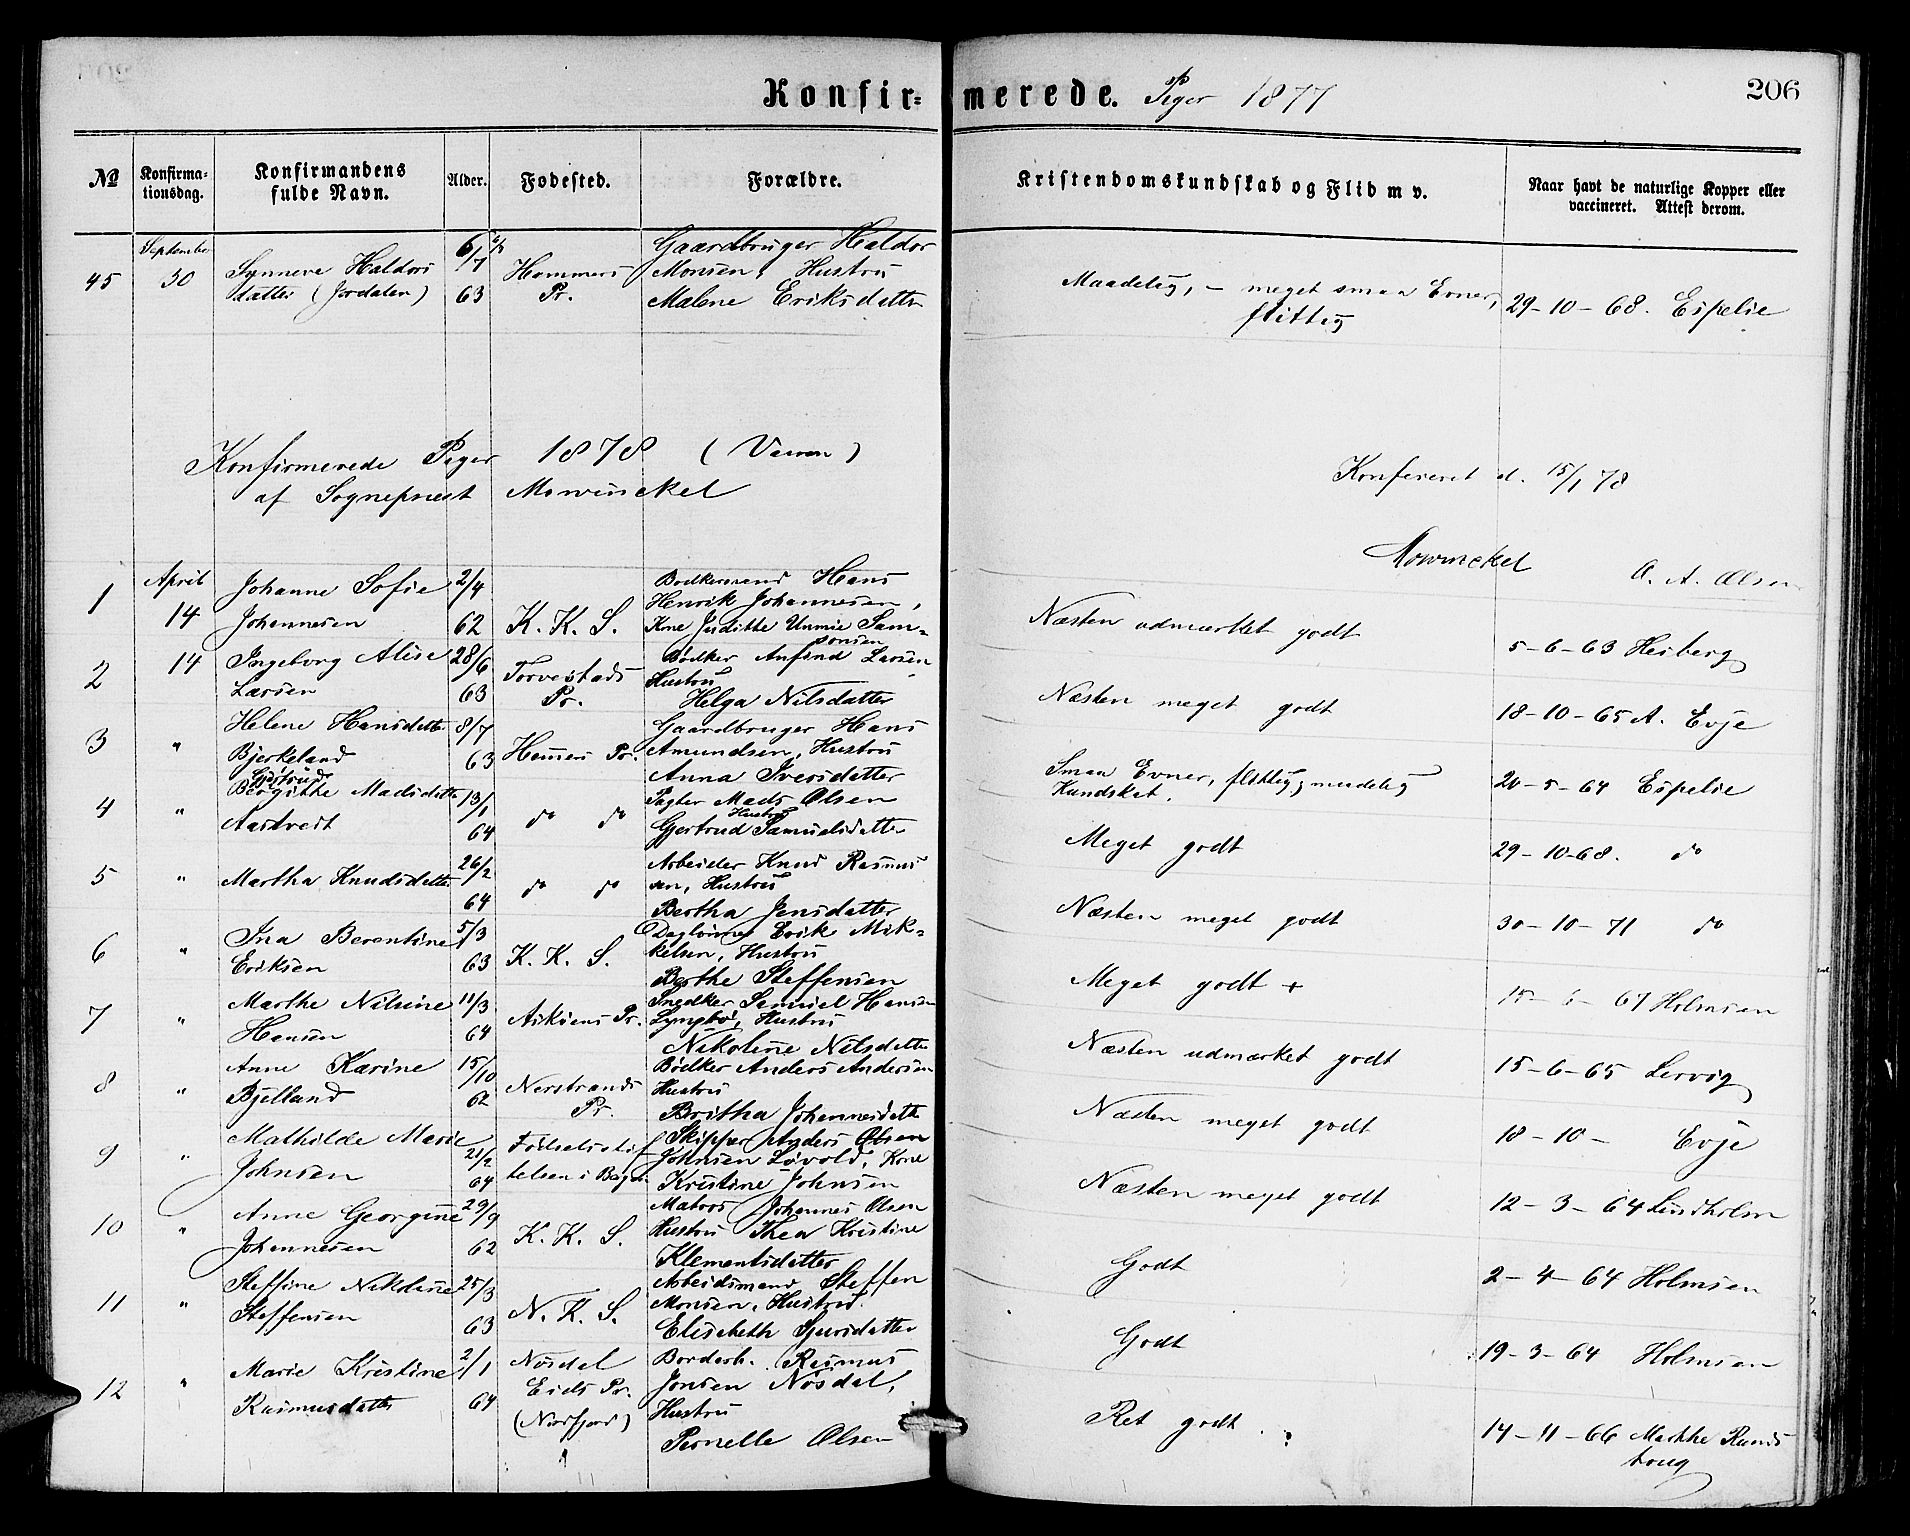 Konfirmerede. Piger 1877
206
№
Konfirmationsdag.
Konfirmandens fulde Navn.
Alder.
Fødested.
Forældre.
Kristendomskundskab og Flid m v.
Naar havt de naturlige Kopper eller vaccineret. Attest derom.
45
September
30
Synneve Haldors
datter (Jordalen)
6/7
63
Hammers
Pr.
Gaardbruger Haldor
Monsen, Hustru
Malene Eriksdatter
Maadelig, – meget smaa Evner,
flittig
29-10-68. Espelie
Konfirmerede Piger 1878 (Vaaren)
af Sognepræst Mowinckel
Konfereret d. 15/1 78
Mowinckel
O. A. Olsen
1
April
14
Johanne Sofie
Johannesen
2/4
62
K. K. S.
Bødkersvend Hans
Henrik Johannesen,
Kone Juditte Unmie Sam=
sonsen
Næsten udmærket godt
5-6-63 Heiberg
2
14
Ingeborg Alise
Larsen
28/6
63
Torvestads
Pr.
Bødker Anfind Larsen
Hustru
Helga Nilsdatter
Næsten meget godt
18-10-65 A. Evje
3
"
Helene Hansdatter
Bjerkeland
8/7
63
Hamers Pr.
Gaardbruger Hans
Amundsen, Hustru
Anna Iversdatter
Smaa Evner, flittig, maadelig
Kundskab.
20-5-64 Espelie
4
"
Gjertrud
Bergitte Madsdatter
Aastveit
13/1
64
do do
Pagter Mads Olsen
Hustru
Gjertrud Samuelsdatter
Meget godt
29-10-68. do
5
"
Martha Knudsdatter
26/2
64
do do
Arbeider Knud Rasmus
sen, Hustru
Bertha Jensdatter
Næsten meget godt
30-10-71 do
6
"
Ina Berentine
Eriksen
5/3
63
K. K. S.
Daglønner Erik Mik=
kelsen, Hustru
Berthe Steffensen
Meget godt +
15-6-67 Holmsen
7
"
Marthe Nilsine
Hansen
11/3
64
Askøens Pr.
Snedker Samuel Hansen
Lyngbø, Hustru
Nikoline Nilsdatter
Næsten udmærket godt
15-6-65 Lervig
8
"
Anne Karine
Bjelland
15/10
62
Nerstrands
Pr.
Bødker Anders Andersen
Hustru
Britha Johannesdatter
Næsten meget godt
18-10- Evje
9
"
Mathilde Marie
Johnsen
21/2
64
Fødselsstif
telsen i Bergen
Skipper Anders Olsen
Johnsen Løvold, Kone
Kristine Johnsen
Næsten meget godt
12-3-64 Lindholm
10
"
Anne Georgine
Johannesen
29/9
62
K. K. S.
Matros Johannes Olsen
Hustru Thea Kristine
Klementsdatter
Godt
2-4-64 Holmsen
11
"
Steffine Nikoline
Steffensen
25/3
63
N. K. S.
Arbeidsmand Steffen
Monsen, Hustru
Elisabeth Sjursdatter
Godt
19-3-64 Holmsen
12
"
Marie Kristine
Rasmusdatter
2/1
64
Nøsdal
Eids Pr.
(Nordfjord)
Bordarb. Rasmus
Jonsen Nøsdal,
Hustru
Pernelle Olsen
Ret godt
14-11-66 Marthe Runds
toug